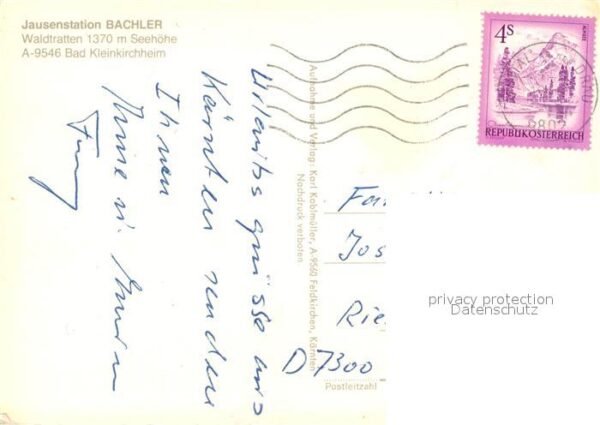 Jausenstation BACHLER
Waldtratten 1370 m Seehöhe
A-9546 Bad Kleinkirchheim
Urlaubsgrüsse aus
Kärnten senden
Ihnen
Aufnahme und Verlag: Karl Kablmüller, A-9560 Feldkirchen, Kärnten
Nachdruck verboten
4S
ALMSEE
REPUBLIK ÖSTERREICH
Fa
Jos
Rie
D 7300
Postleitzahl
privacy protection
Datenschutz